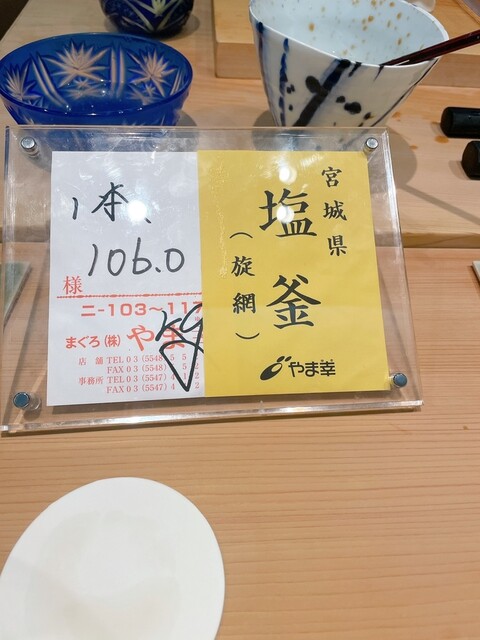 1本、
106.0
kg
様
二-103~117
まぐろ(株)やま
店舗 TEL03(5548)5
FAX03(5548)
事務所 TEL03(5547)4
FAX03(5547)4
宮城県
塩釜
(旋網)
やま幸